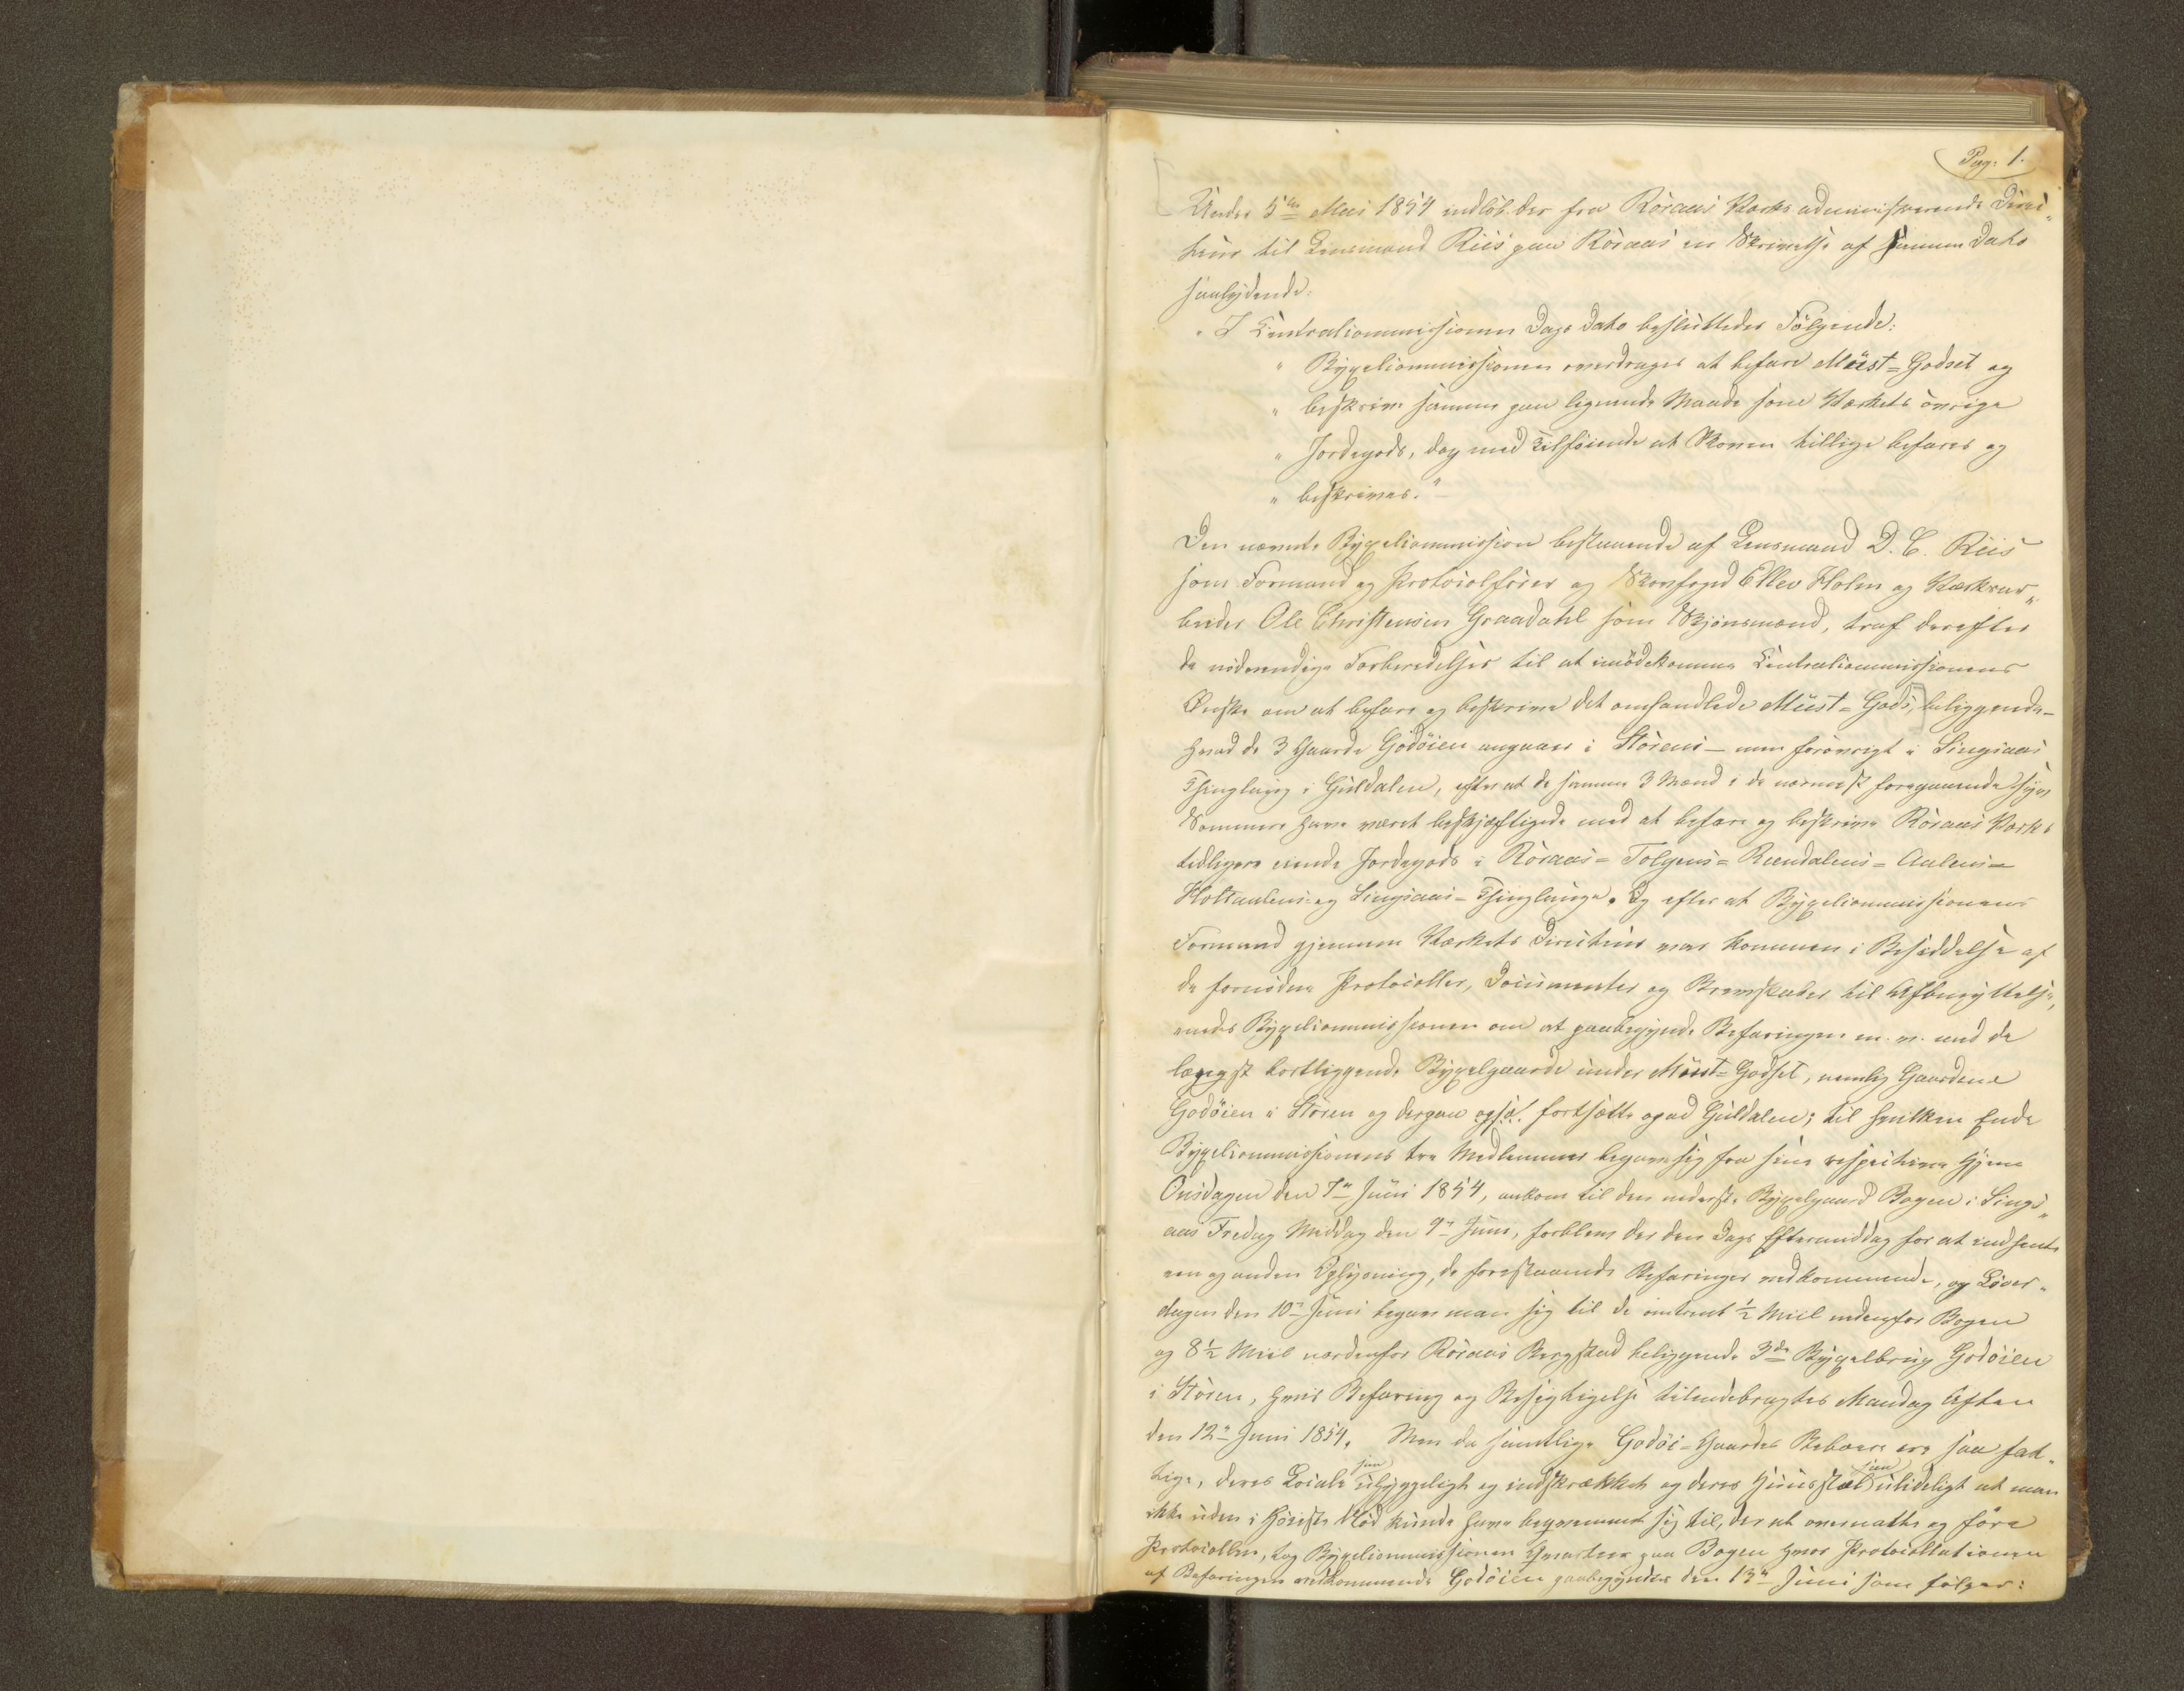 Pag: 1.
Under 5te Mai 1854 indløb der fra Röraas Værks administrerende Direc„
teur til Lensmand Riis paa Röraas en Skrivelse af samme Dato
saalydende:
„ I Centralcommissionen Dags Dato besluttedes Følgende:
„ Bygselcommissionen overdrages at befare Müst=Godset og
„ beskrive samme paa lignende Maade som Værkets övrige
„ Jordegods, dog med Tilföiende at Skoven tillige befares og
„ beskrives.“
Den nævnte Bygselcommission bestaaende af Lensmand D. C. Riis
som Formand og Protocolförer og Skovfoged Ellev Holm og Værksar„
beider Ole Christensen Graadahl som Skjönsmænd, traf derefter
de nödvendige Forberedelser til at imödekomme Centralcommissionens
Ønske om at befare og beskrive det omhandlede Müst=Gods, beliggende–
hvad de 3 Gaarde Godöien angaaer i Stören – men forövrigt i Singsaas
Thinglaug i Guldalen, efter at de samme 3 Mænd i de nærmest foregaaende syv
Sommere have været beskjæftigede med at befare og beskrive Röraas Værks
tidligere eiende Jordegods i Röraas= Tolgens= Reendalens= Aalens=
Holtaalens og Singsaas= Thinglauge. Og efter at Bygselcommissionens
Formand gjennem Værkets Directeur var kommen i Besiddelse af
de fornödne Protocoller, Documenter og Brevskaber til Afbenyttelse,
enedes Bygselcommissionen om at paabegynde Befaringen m. v. med de
længst bortliggende Bygselgaarde under Müst=Godset, nemlig Gaardene
Godöien i Stören og derpaa ogsaa fortsætte opad Guldalen; til hvilken Ende
Bygselcommissionens tre Medlemmer begave sig fra sine respective Hjem
Onsdagen den 7de Juni 1854, ankom til den nederste Bygselgaard Bogen i Sings„
aas Fredag Middag den 9de Juni, forblev der den Dags Eftermiddag for at indhente
een og anden Oplysning, de forestaaende Befaringer vedkommende, og Löver„
dagen den 10de Juni begav man sig til de omtrent ½ Miil nedenfor Bogen
og 8½ Miil nordenfor Röraas Bergstad beliggende 3de Bygselbrug Godöien
i Stören, hvis Befaring og Besigtigelse tilendebragtes Mandag Aften
den 12te Juni 1854. Men da samtlige Godöi=Gaardes Beboere ere saa fat„
tige, deres Locale saa uhyggeligt og indskrænket og deres Huusstæl saa ulideligt at man
ikke uden i höieste Nöd kunde have beqvemmet sig til, der at overnatte og före
Protocollen, tog Bygselcommissionen Qvarteer paa Bogen hvor Protocollationen
af Befaringen vedkommende Godöien paabegyndtes den 13de Juni som fölger: